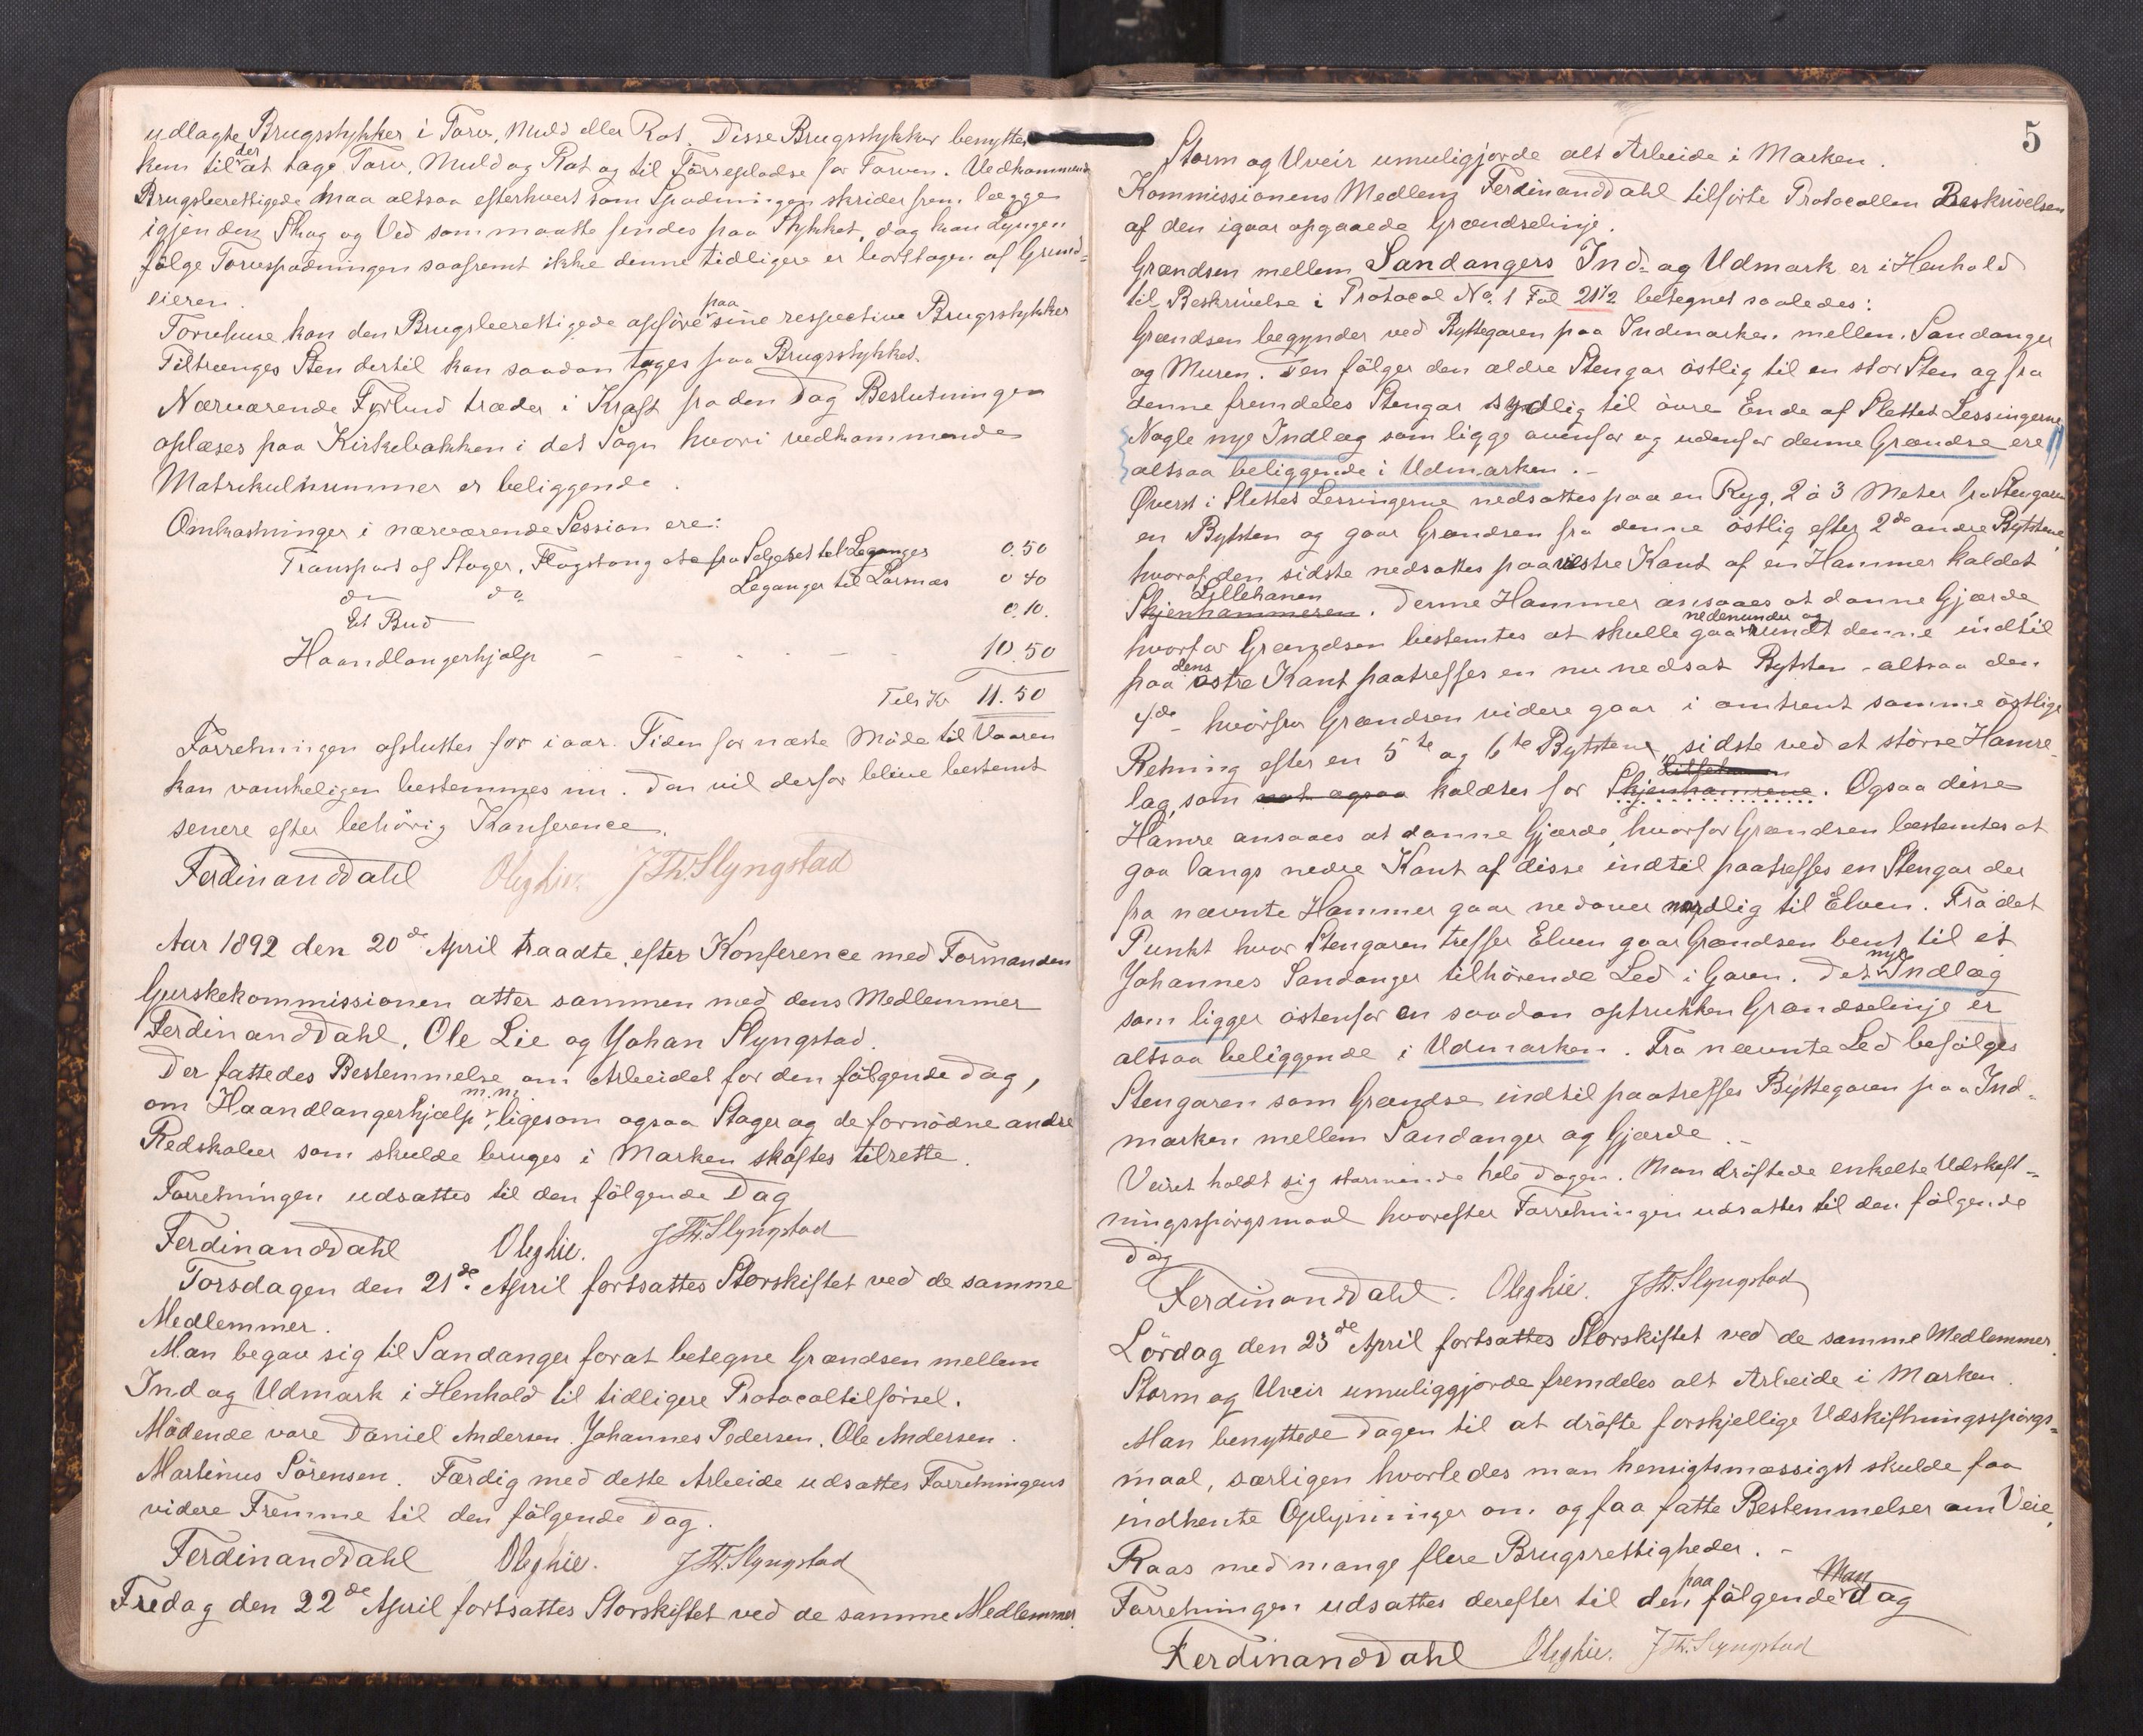 udlagte Brugsstykker i Torv, Muld eller Rot. Disse Brugsstykker benyttes
kun til der at tage Torv, Muld og Rot og til Törrepladse for Torven. Vedkommende
Brugsberettigede maa altsaa efterhvert som Spadningen skrider frem lægge
igjen den Skog og Ved som maatte findes paa Stykket, dog kan Lyngen
fölge Torvespadningen saafremt ikke denne tidligere er borttagen af Grund=
eieren.
Torvehuse kan den Brugsberettigede opföre paa sine respective Brugsstykker
Tiltrænges Sten dertil kan saadan tages paa Brugsstykket.
Nærværende Forbud træder i Kraft fra den Dag Beslutningen
oplæses paa Kirkebakken i det Sogn hvori vedkommende
Matrikulnummer er beliggende.
Omkostninger i nærværende Session ere:
Transport af Stager, Flagstang etc fra Seljeset til Leganger 0.50
do do Leganger til Larsnæs 0 40
Et Bud 0.10.
Haandlangerhjælp - - - - - 10.50
Tels Kr 11.50
Forretningen afsluttes for iaar. Tiden for næste Möde til Vaaren
kan vanskeligen bestemmes nu. Den vil derfor blive bestemt
senere efter behörig Konference.
Ferdinand Dahl Ole Lie J Th. Slyngstad
Aar 1892 den 20de April traadte, efter Konference med Formanden
Gurskekommissionen atter sammen med dens Medlemmer
Ferdinand Dahl, Ole Lie og Johan Slyngstad.
Der fattedes Bestemmelse om Arbeidet for den fölgende Dag,
om Haandlangerhjælp m.m., ligesom ogsaa Stager og de fornödne andre
Redskaber som skulde bruges i Marken skaftes tilrette.
Forretningen udsattes til den fölgende Dag
Ferdinand Dahl Ole Lie. J Th. Slyngstad
Torsdagen den 21de April fortsattes Storskiftet ved de samme
Medlemmer.
Man begav sig til Sandanger forat betegne Grændsen mellem
Ind og Udmark i Henhold til tidligere Protocoltilförsel.
Mödende vare Daniel Andersen, Johannes Pedersen, Ole Andersen.
Martinus Sörensen. Færdig med dette Arbeide udsattes Forretningens
videre Fremme til den fölgende Dag.
Ferdinand Dahl Ole Lie. J Th. Slyngstad
Fredag den 22de April fortsattes Storskiftet ved de samme Medlemmer.
5
Storm og Uveir umuligjorde alt Arbeide i Marken.
Kommissionens Medlem Ferdinand Dahl tilförte Protocollen Beskrivelsen
af den igaar opgaaede Grændselinje.
Grændsen mellem Sandangers Ind- og Udmark er i Henhold
til Beskrivelse i Protocol No. 1 Fol 211/2 betegnet saaledes:
Grændsen begynder ved Byttegaren paa Indmarken mellem Sandanger
og Muren. Den fölger den ældre Stengar östlig til en stor Sten og fra
denne fremdeles Stengar sydlig til övre Ende af Slettet Lessingerne
Nogle nye Indlæg som ligge ovenfor og udenfor denne Grændse ere
altsaa beliggende i Udmarken.-
Øverst i Slettet Lessingerne nedsattes paa en Ryg, 2 à 3 Meter fra Stengaren
en Bytsten og gaar Grændsen fra denne östlig efter 2de andre Bytstene,
hvoraf den sidste nedsattes paa vestre Kant af en Hammer kaldet
Skjenhammeren Lillehanen. Denne Hammer ansaaes at danne Gjærde
hvorfor Grændsen bestemtes at skulle gaa nedenunder og rundt denne indtil
paa dens östre Kant paatreffes en nu nedsat Bytsten - altsaa den
4de - hvorfra Grændsen videre gaar i omtrent samme östlige
Retning efter en 5te og 6te Bytstene, sidste ved et större Hamre
lag, som ogsaa kaldtes for Skjenhamrene. Ogsaa disse
Hamre ansaaes at danne Gjærde, hvorfor Grændsen bestemtes at
gaa langs nedre Kant af disse indtil paatreffes en Stengar der
fra nævnte Hammer gaar nedover nordlig til Elven. Fra det
Punkt hvor Stengaren treffer Elven gaar Grændsen bent til et
Johannes Sandanger tilhörende Led i Garen. Det nye Indlæg
som ligger östenfor en saadan optrukken Grændselinje er
altsaa beliggende i Udmarken. Fra nævnte Led befölges
Stengaren som Grændse indtil paatreffes Byttegaren paa Ind-
marken mellem Sandanger og Gjærde.-
Veiret holdt sig stormende hele Dagen. Man dröftede enkelte Udskift=
ningsspörgsmaal hvorefter Forretningen udsattes til den fölgende
Dag
Ferdinand Dahl. Ole Lie. J Th. Slyngstad
Lördag den 23de April fortsattes Storskiftet ved de samme Medlemmer.
Storm og Uveir umuliggjorde fremdeles alt Arbeide i Marken.
Man benyttede Dagen til at dröfte forskjellige Udskiftningsspörgs=
maal, særligen hvorledes man hensigtsmæssigst skulde faa
indhente Oplysninger om og faa fatte Bestemmelser om Veie,
Raas med mange flere Brugsrettigheder.-
Forretningen udsattes derefter til den paa fölgende Man dag
Ferdinand Dahl Ole Lie. J Th. Slyngstad